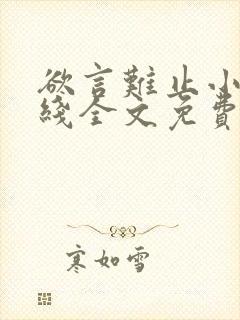 欲言難止小
綫全文免費
寒如雪